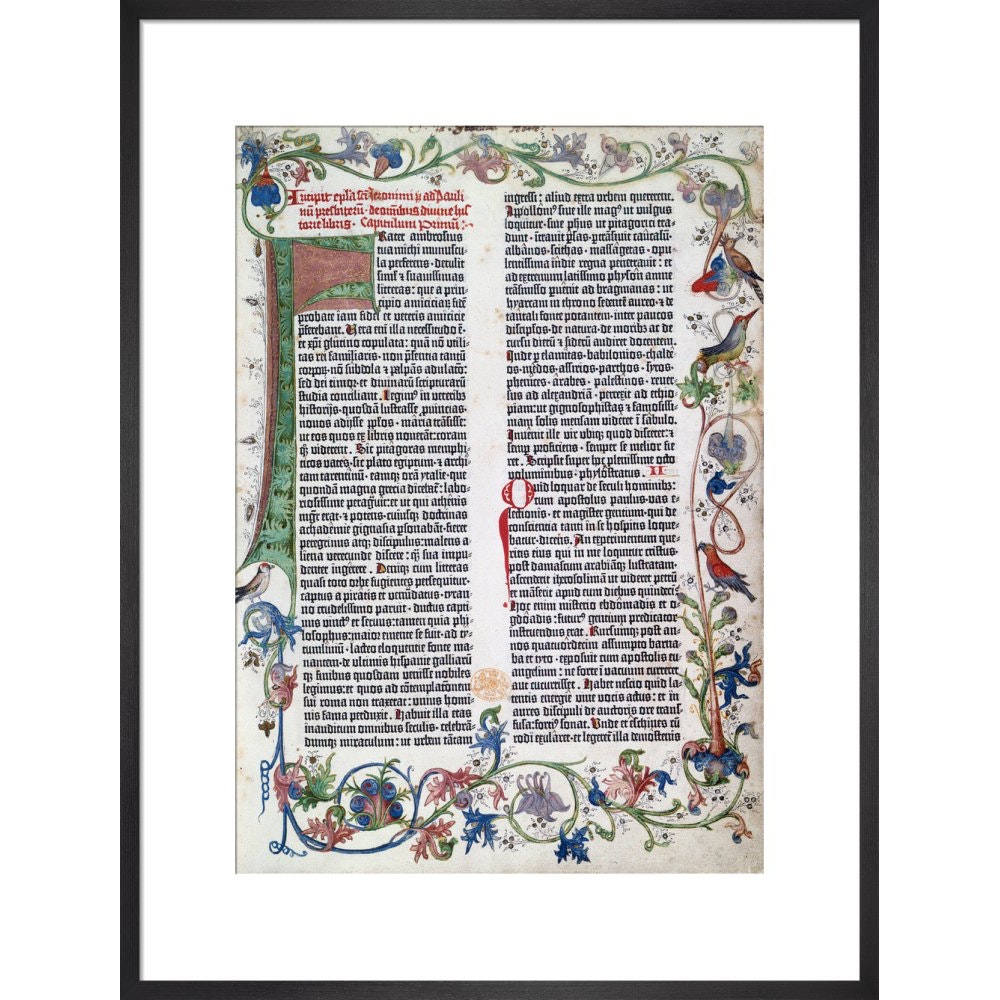 Incipit epla scti Jeronimi pri ad Pauli
nū presbiterū · de omībus divine his
torie libris · Capitulum Primū:·
Frater ambrosius
tua michi munuscu-
la perferens · detulit
simĺ ⁊ suavissimas
litteras: que a prin-
cipio amiciciaꝝ fidē
probate iam fidei et veteris amicicie
pferebant. Vera enī illa necessitudo ē·
et xp̄i glutino copulata: quā nō utili-
tas rei familiaris · nō p̄sentia tantū
corpoꝝ · nō subdola ⁊ palpās adulacō:
sed dei timoꝝ · et divinaꝝ scripturarū
studia conciliant. Legimꝰ in veteribꝰ
historijs · quosdā lustrasse ꝓvincias ·
novos adijsse pplos · maria trāsisse ·
ut eos quos ex libris noverāt: coram
qꝫ viderent. Sic pitagoras memphi-
ticos vates · sic plato egiptum · ⁊ archi-
tam tarentinū · eamqꝫ orā ytalie · que
quondā magna grecia dicebat̄: labo-
riosissime peragᵃvit: et ut qui athenis
mgr̄ erat · ⁊ potens · cuiusqꝫ doctrinas
achademie gignasia psonabāt · fieret
peregrinus atqꝫ discipulus: malens a-
liena verecunde discere: qꝫ sua impu-
denter ingerere. Deniqꝫ cum litteras
quasi toto orbe fugientes persequitur ·
captus a piratis et venūdatus · tyran-
no crudelissimo paruit · ductus capti-
vus vinctꝰ et servus: tamen quia phi-
losophus: maior emente se fuit · ad ty-
tumlivīū · lacteo eloquentie fonte ma-
nantem · de ultimis hispanie galliaꝝ-
qꝫ finibus quosdam venisse nobiles
legimus: et quos ad cōtemplacōnem
sui roma non traxerat: unius homi-
nis fama perduxit. Habuit illa etas
inauditum omnibus seculis · celebrā-
dumqꝫ miraculum: ut urbem tantam
ingressi: aliud extra urbem quererent.
Appolloniꝰ sive ille magꝰ ut vulgus
loquitur · sive phūs ut pitagorici tra-
dunt · ītravit psas · ptrāsivit caucasū ·
albanos · scithas · massagetas · opu-
lentissima indie regna penetravit: et
ad extremum latissimo physon amne
trāsmisso puenit ad bragmanas: ut
hyarcam in throno sedentē aureo · ⁊ de
tantali fonte potantem · inter paucos
discipl̄os · de natura · de moribꝰ ac de
cursu dieꝝ ⁊ sideꝝ audiret docentem.
Inde p elamitas · babilonios · chalde-
os · medos · assirios · parthos · syros ·
phenices · arabes · palestinos · rever-
sus ad alexandriā · perrexit ad ethio-
piam: ut gignosophistas ⁊ famosissi-
mam solis mensam videret ī sabulo.
Invenit ille vir ubiqꝫ quod disceret: ⁊
semp proficiens · semper se melior fie-
ret. Scripsit super hoc plenissime octo
voluminibus · phylostratus. II
Quid loquar de seculi hominibꝰ:
cum apostolus paulus · vas e-
lectionis · et magister gentium · qui de
conscientia tanti in se hospitis loque-
batur · dicens. An experimentum que-
ritis eius qui in me loquitur cristus.
Post damascum arabiāqꝫ lustratam ·
ascenderit iherosolimā ut videret petrū
et māserit apud eum diebus quindecī.
Hoc enim misterio ebdomadis et o-
gdoadis: futurꝰ gentium predicator
instruendus erat. Rursumqꝫ post an-
nos quatuordecim assumpto barna-
ba et tyto · exposuit cum apostolis eu-
angelium: ne forte ī vacuum curreret
aut cucurrisset. Habet nescio quid la-
tentis energie vive vocis actus: et in
aures discipuli de auctoris ore trans-
fusa: fortiꝰ sonat. Unde et eschines cū
rodi exularet · et legeretur illa demostenis